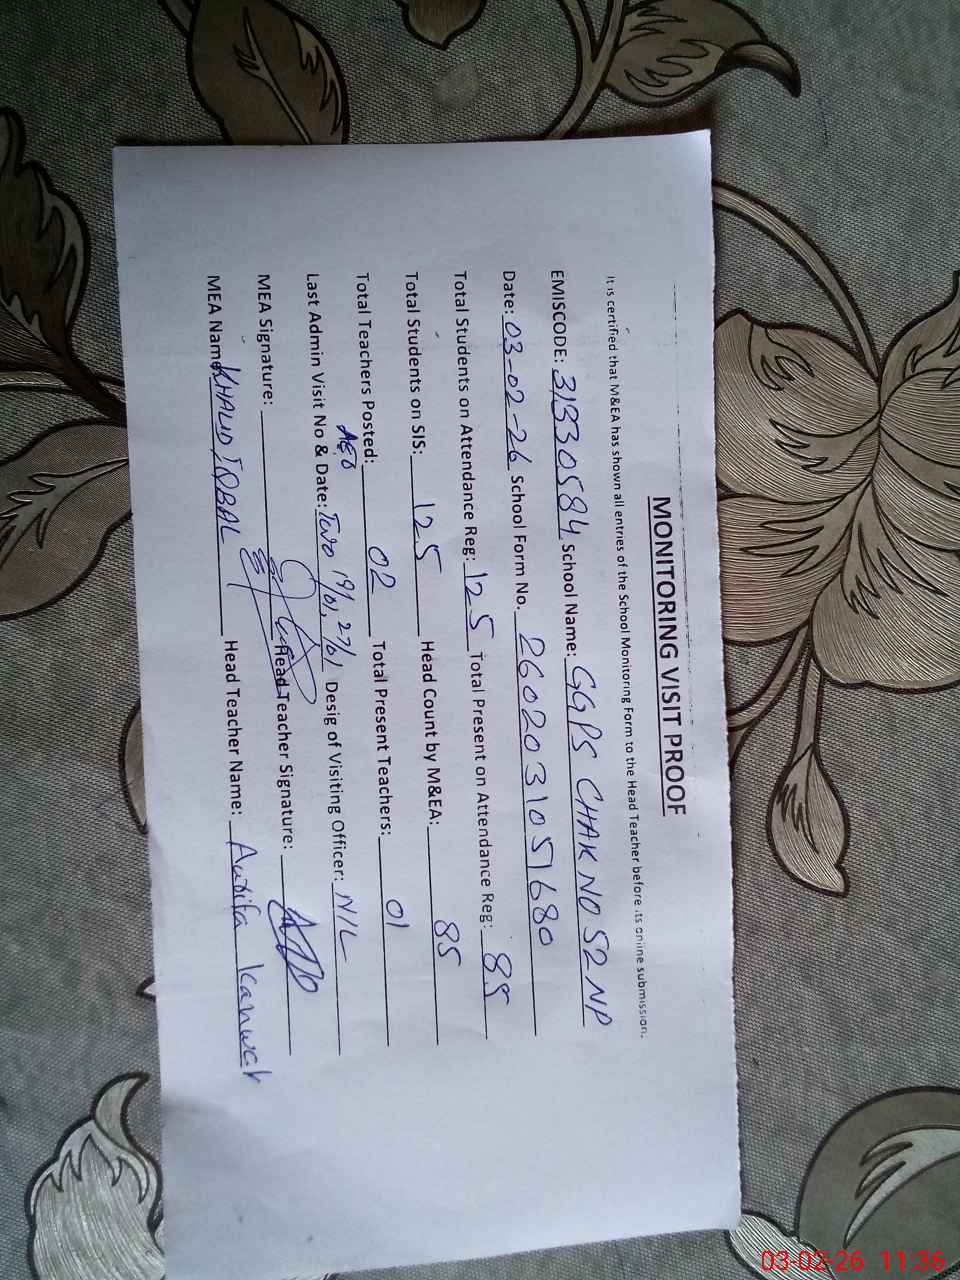 MONITORING VISIT PROOF
It is certified that M&EA has shown all entries of the School Monitoring Form to the Head Teacher before its online submission.
EMISCODE: 31330584 School Name: GGPS CHAK NO 52 NP
Date: 03-02-26 School Form No. 2602031051680
Total Students on Attendance Reg: 125 Total Present on Attendance Reg: 85
Total Students on SIS: 125 Head Count by M&EA: 85
Total Teachers Posted: 02 Total Present Teachers: 01
AEO
Last Admin Visit No & Date: Two 19/01, 27/01 Desig of Visiting Officer: NIL
MEA Signature: Head Teacher Signature:
MEA Name: KHALID IQBAL Head Teacher Name: Kanwal
03-02-26 11:36